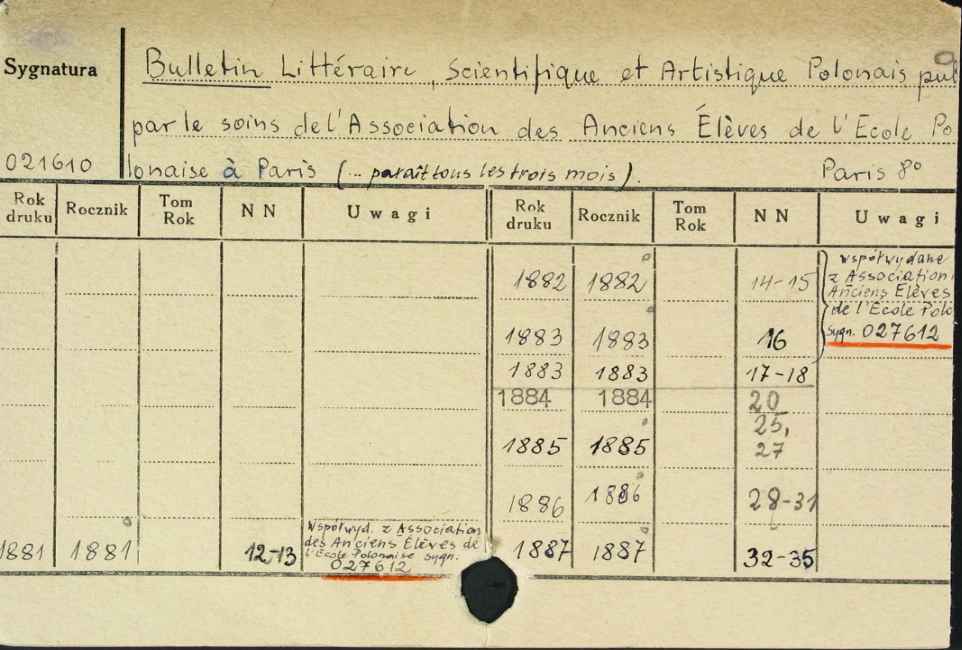 Sygnatura
Bulletin Littéraire, Scientifique et Artistique Polonais pu
par le soins de l'Association des Anciens Élèves de l'Ecole Po
021610
lonaise à Paris (... paraît tous les trois mois). Paris 8º
Rok druku Rocznik Tom Rok N N Uwagi Rok druku Rocznik Tom Rok N N Uwagi
1882 1882 14-15
współwydane
z Association
Anciens Élèves
de l'Ecole Polo
sygn. 027612
1883 1883 16
1883 1883 17-18
1884 1884 20
25,
1885 1885 27
1886 1886 28-31
1881 1881 12-13
Współwyd. z Association
des Anciens Élèves de
l'Ecole Polonaise sygn.
027612
1887 1887 32-35